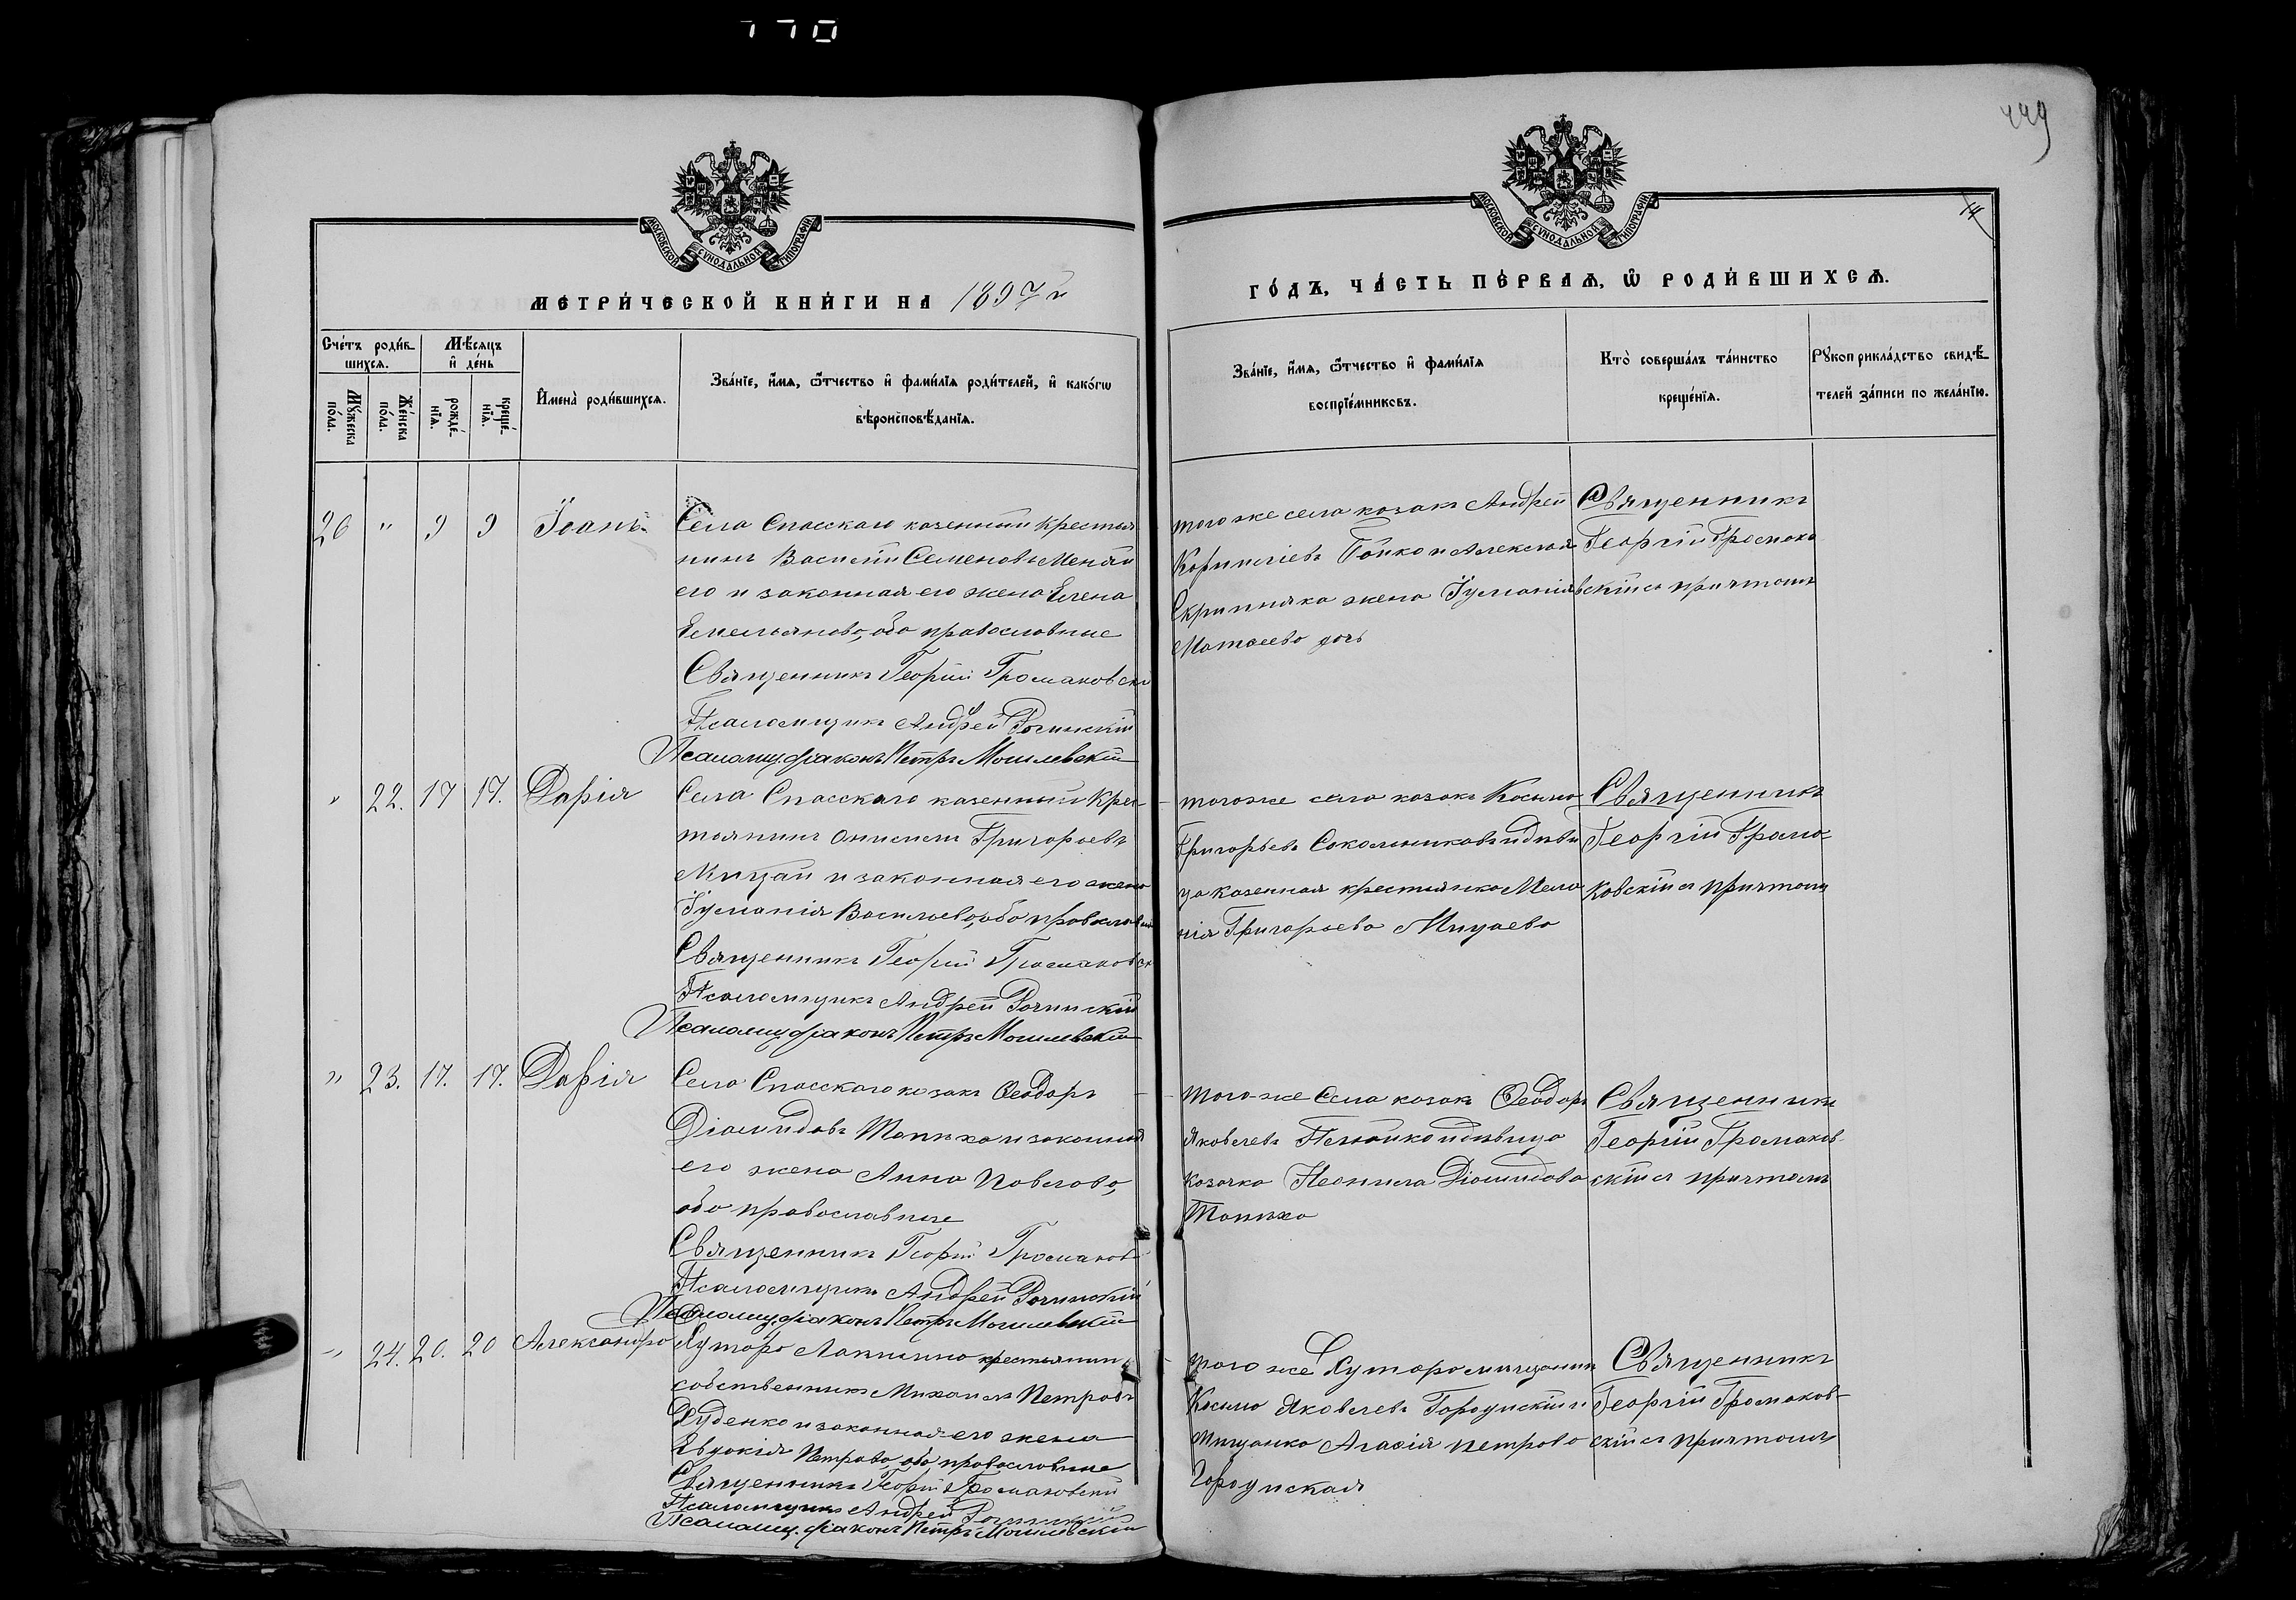 770
449
14
МОСКОВСКОЙ СѴНОДАЛЬНОЙ ТИПОГРАФІИ
МОСКОВСКОЙ СѴНОДАЛЬНОЙ ТИПОГРАФІИ
МЕТРИ́ЧЕСКОЙ КНИ́ГИ НА 1897 й
ГО́ДЪ, ЧА́СТЬ ПЕ́РВАѦ, Ѡ҆ РОДИ́ВШИХСѦ.
Сче́тъ роди́в-
шихсѧ.
Мѣ́сѧцъ
и҆ де́нь
Мꙋ́жеска по́ла.
Же́нска по́ла.
рожде́-нїѧ.
креще́-нїѧ.
И҆мена̀ роди́вшихсѧ.
Зва́нїе, и҆́мѧ, ѻ҆́тчество и҆ фами́лїѧ роди́телей, и҆ како́гѡ
вѣроисповѣ́данїѧ.
Зва́нїе, и҆́мѧ, ѻ҆́тчество и҆ фами́лїѧ
воспрїе́мниковъ.
Кто̀ соверша́лъ та́инство
креще́нїѧ.
Рꙋкоприкла́дство свидѣ́-
телей за́писи по жела́нїю.
20 " 9 9 Іоаннъ
Села Спасскаго казенный крестья
нинъ Василій Семеновъ
его и законная его жена Елена
Емельянова, оба православные
Священникъ Георгій Громаковскі
Псаломщикъ Андрей
Псаломщ. діаконъ Петръ Могилевскій
того же села козакъ Андрей
Корниліевъ Бойко и
жена Іуліанія
Матѳеева дочь
Священникъ
Георгій Громако
вскій съ причтомъ
" 22. 17 17. Дарія
Села Спасскаго казенный крес-
тьянинъ Онисимъ Григорьевъ
Мицай и законная его жена
Іуліанія Васильева, оба православны
Священникъ Георгій Громаковск
Псаломщикъ Андрей
Псаломщ. діаконъ Петръ Могилевскій
того же села козакъ Косьма
Григорьевъ Сокольниковъ и дѣви
ца казенная крестьянка Мела
нія Григорьева Мицаева
Священникъ
Георгій Грома-
ковскій съ причтомъ
" 23. 17. 17. Дарія
Села Спасскаго козакъ Ѳеодоръ
Діомидовъ и законная
его жена Анна Павлова,
оба православные
Священникъ Георгій Громаков
Псаломщикъ Андрей
Псаломщ. діаконъ Петръ Могилевскій
того-же села козакъ Ѳеодоръ
Яковлевъ и дѣвица
козачка Неонила Діомидова
Священникъ
Георгій Громаков-
скій съ причтомъ
" 24. 20. 20 Александра
Хутора крестьянинъ
собственникъ Михаилъ Петровъ
Худенко и законная его жена
Евдокія Петрова, оба православные
Священникъ Георгій Громаковскій
Псаломщикъ Андрей
Псаломщ. діаконъ Петръ Могилевскій
того же хутора мещанинъ
Косьма Яковлевъ Городискій и
мещанка Агафія Петрова
Городиская
Священникъ
Георгій Громаков-
скій съ причтомъ